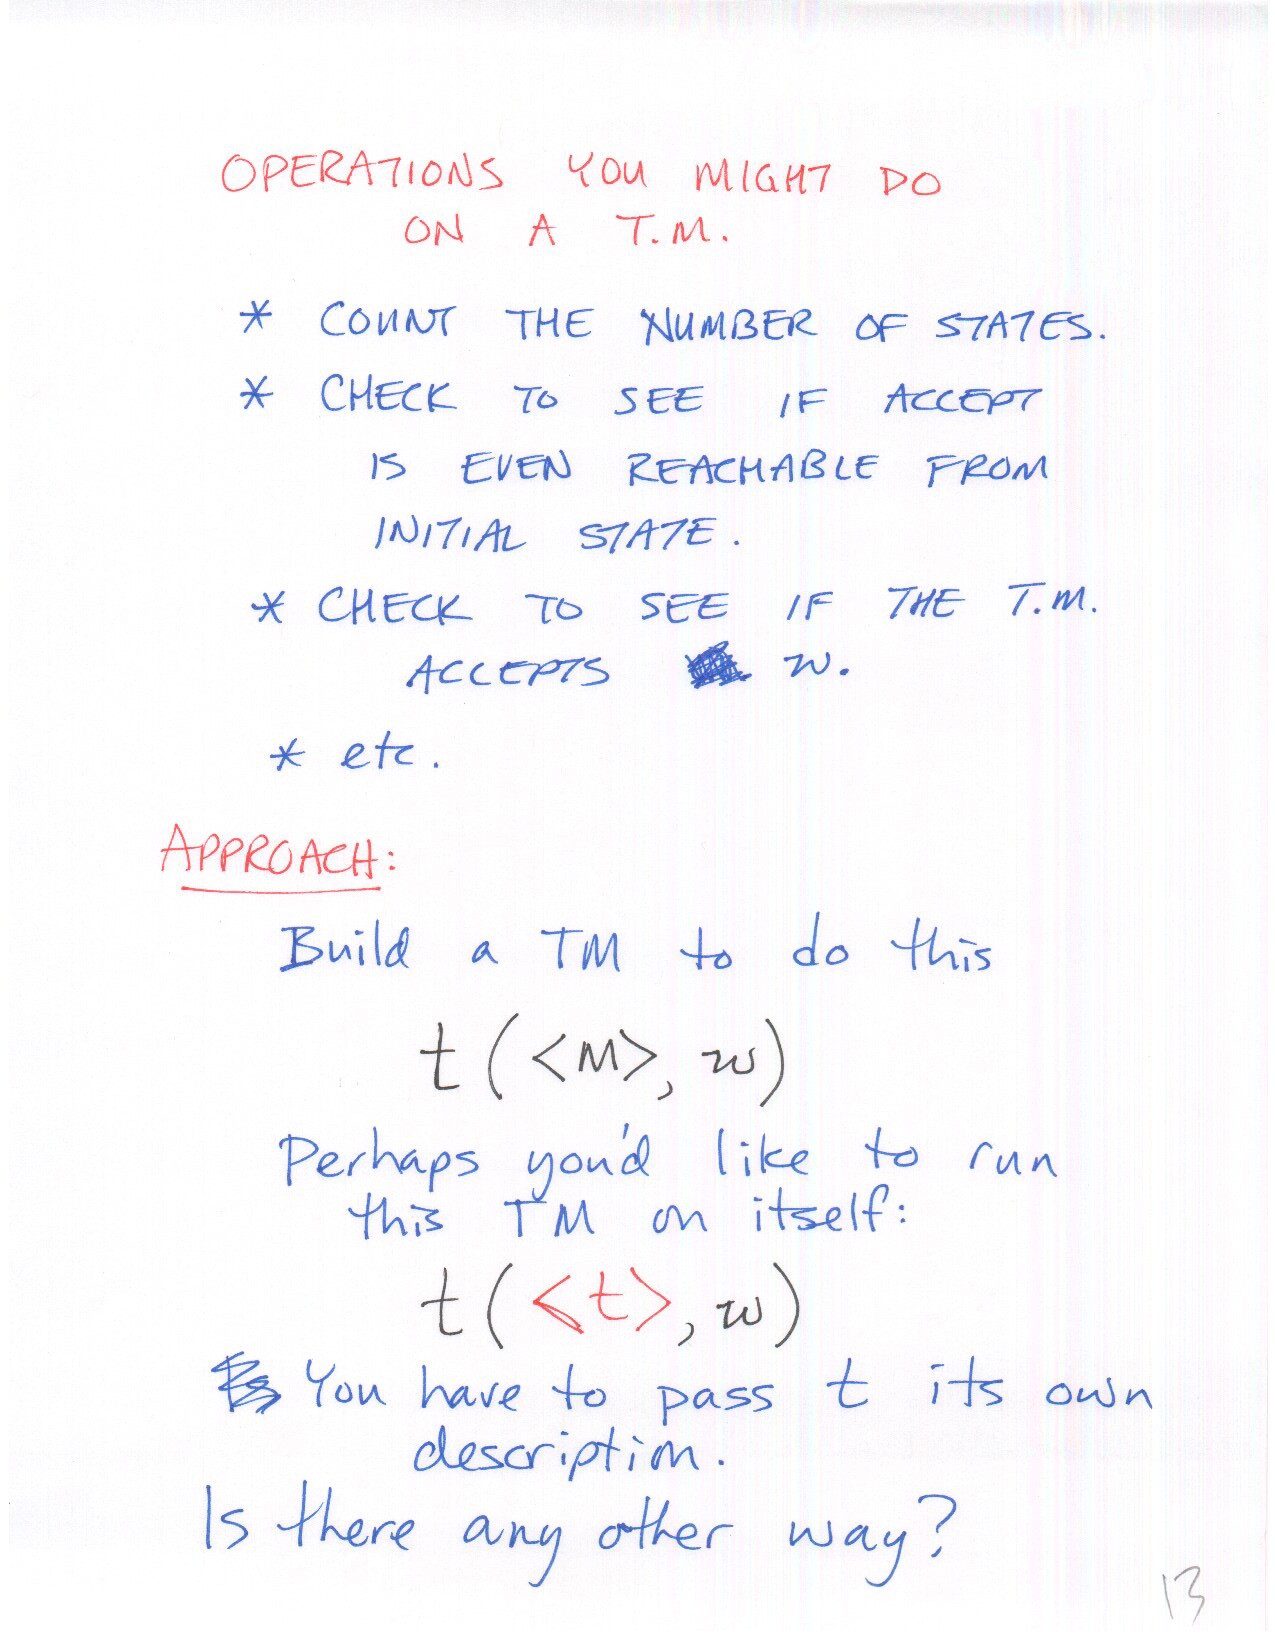 OPERATIONS YOU MIGHT DO
ON A T.M.
* COUNT THE NUMBER OF STATES.
* CHECK TO SEE IF ACCEPT
IS EVEN REACHABLE FROM
INITIAL STATE.
* CHECK TO SEE IF THE T.M.
ACCEPTS w.
* etc.
APPROACH:
Build a TM to do this
t(<M>, w)
Perhaps you'd like to run
this TM on itself:
t(<t>, w)
You have to pass t its own
description.
Is there any other way?
13